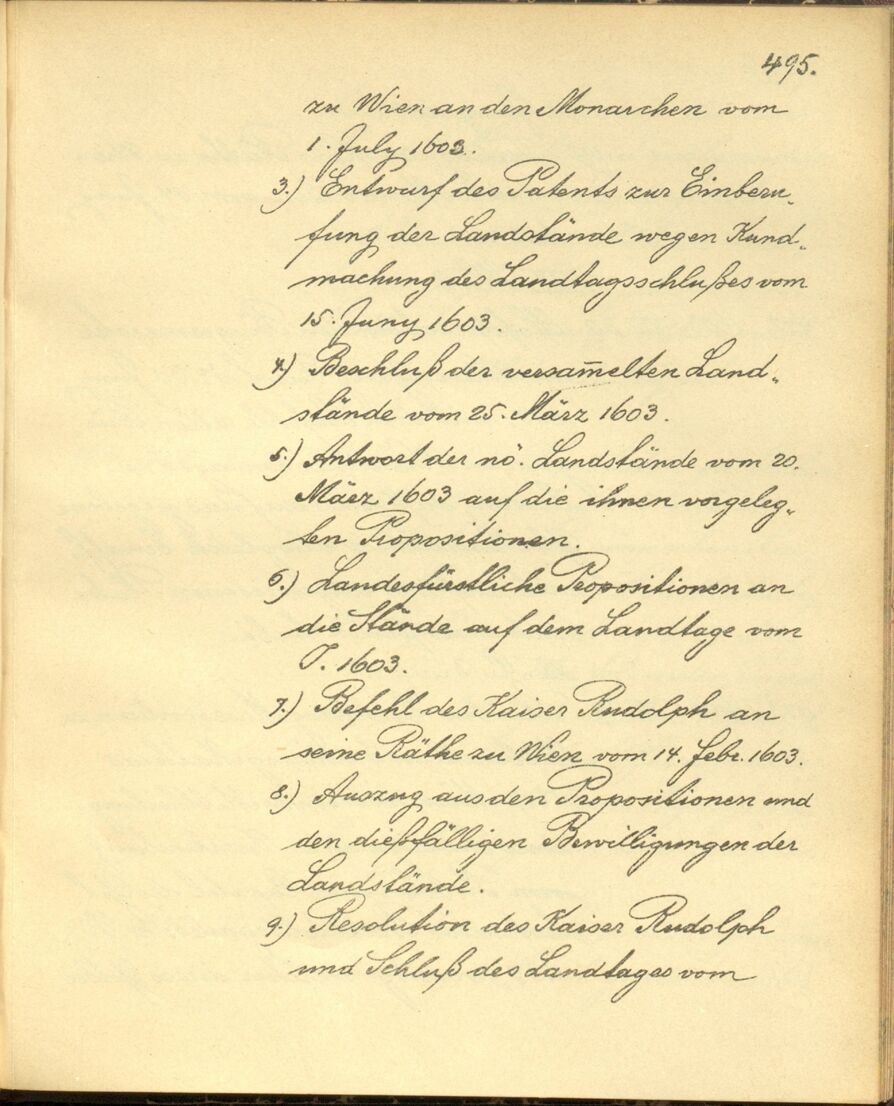 495.
zu Wien an den Monarchen vom
1. July 1603.
3.) Entwurf des Patents zur Einberu„
fung der Landstände wegen Kund„
machung des Landtagsschlußes vom
15. Juny 1603.
4.) Beschluß der versam̅elten Land„
stände vom 25. März 1603.
5.) Antwort der nö. Landstände vom 20.
März 1603 auf die ihnen vorgeleg„
ten Propositionen.
6.) Landesfürstliche Propositionen an
die Stände auf dem Landtage vom
J. 1603.
7.) Befehl des Kaiser Rudolph an
seine Räthe zu Wien vom 14. Febr. 1603.
8.) Auszug aus den Propositionen und
den dießfälligen Bewilligungen der
Landstände.
9.) Resolution des Kaiser Rudolph
und Schluß des Landtages vom